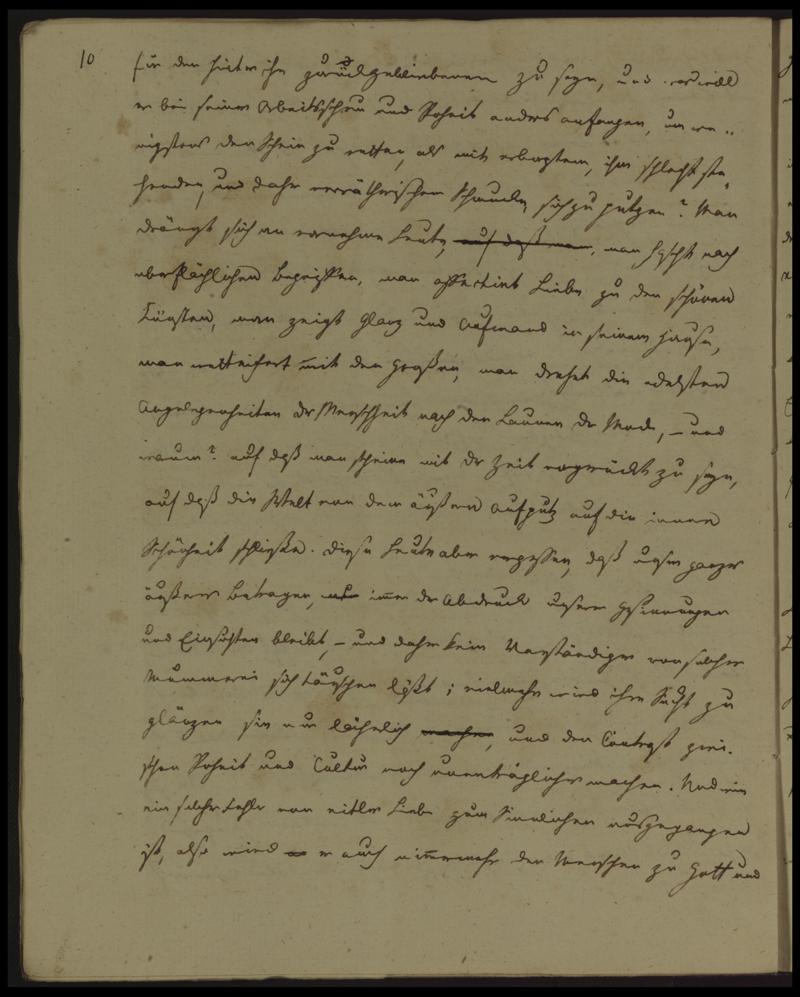 10
für den hinter ihn zurückgebliebenen zu seyn, und wie will
er bei seiner Arbeitsscheu und Roheit anders anfangen, um we-
nigstens den Schein zu retten, als mit erborgtem, ihm schlecht ste-
henden, und daher verrätherischem Schmucke, sich zu putzen? Man
drängt sich an vornehme Leute, auf daß man, man hascht nach
oberflächlichen Begriffen, man affectirt Liebe zu den schönen
Künsten, man zeigt Glanz und Aufwand in seinem Hause,
man wetteifert mit den Großen, man drehet die edelsten
Angelegenheiten der Menschheit nach den Launen der Mode, – und
warum? auf daß man scheine mit der Zeit vorgerückt zu seyn,
auf daß die Welt von dem äußern Aufputz auf die innere
Schönheit schließe. Diese Leute aber vergessen, daß unser ganzes
äußeres Betragen, nur immer der Abdruck unserer Gesinnungen
und Einsichten bleibt, – und daher kein Verständiger von solcher
Mummerei sich täuschen läßt; vielmehr wird ihre Sucht zu
glänzen sie nur lächerlich machen, und den Contrast zwi-
schen Roheit und Cultur noch unerträglicher machen. Und wie
ein solcher Fehler von eitler Liebe zum Sinnlichen ausgegangen
ist, also wird er auch nimmermehr den Menschen zu Gott und